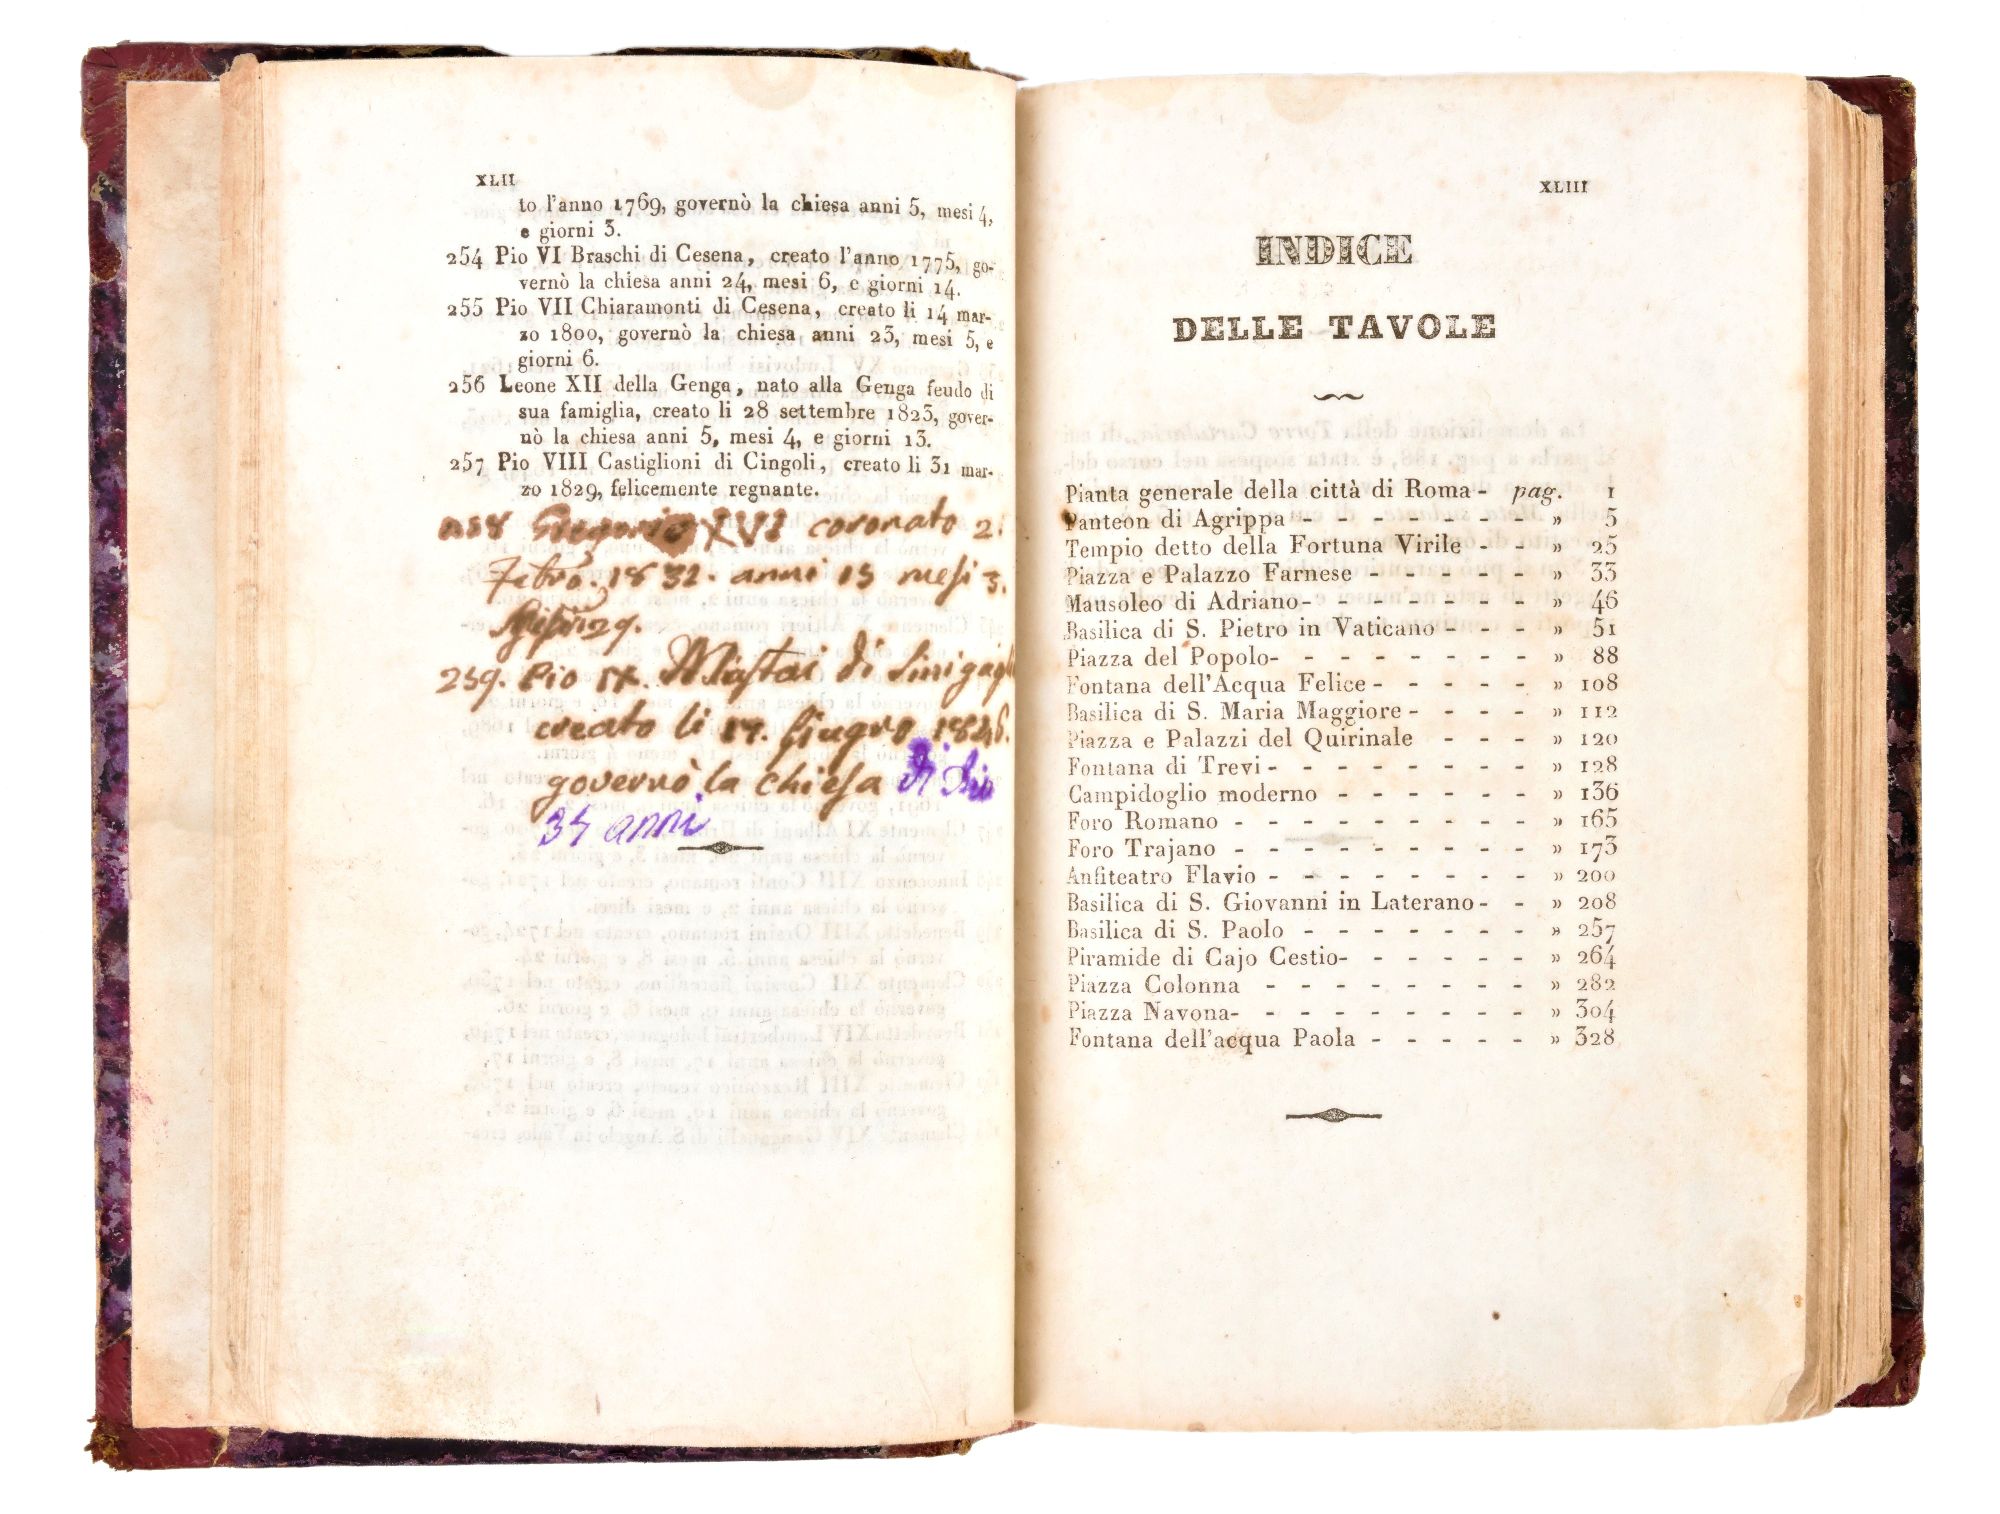 XLII
to l'anno 1769, governò la chiesa anni 5, mesi 4,
e giorni 3.
254 Pio VI Braschi di Cesena, creato l'anno 1775, go-
vernò la chiesa anni 24, mesi 6, e giorni 14.
255 Pio VII Chiaramonti di Cesena, creato li 14 mar-
zo 1800, governò la chiesa anni 23, mesi 5, e
giorni 6.
256 Leone XII della Genga, nato alla Genga feudo di
sua famiglia, creato li 28 settembre 1823, gover-
nò la chiesa anni 5, mesi 4, e giorni 13.
257 Pio VIII Castiglioni di Cingoli, creato li 31 mar-
zo 1829, felicemente regnante.
258 Gregorio XVI coronato 2.
Febro. 1832. anni 15 mesi 3.
29.
259. Pio IX. Mastai di Sinigagl
creato li 17. Giugno 1846.
governò la chiesa di Dio
34 anni
XLIII
INDICE
DELLE TAVOLE
Pianta generale della città di Roma - pag. 1
Panteon di Agrippa - - - - - - - - - » 5
Tempio detto della Fortuna Virile - - » 25
Piazza e Palazzo Farnese - - - - - - » 33
Mausoleo di Adriano - - - - - - - - » 46
Basilica di S. Pietro in Vaticano - - - » 51
Piazza del Popolo - - - - - - - - - » 88
Fontana dell'Acqua Felice - - - - - » 108
Basilica di S. Maria Maggiore - - - - » 112
Piazza e Palazzi del Quirinale - - - » 120
Fontana di Trevi - - - - - - - - - » 128
Campidoglio moderno - - - - - - - » 136
Foro Romano - - - - - - - - - » 165
Foro Trajano - - - - - - - - - » 173
Anfiteatro Flavio - - - - - - - - » 200
Basilica di S. Giovanni in Laterano - - » 208
Basilica di S. Paolo - - - - - - - » 257
Piramide di Cajo Cestio - - - - - - » 264
Piazza Colonna - - - - - - - - » 282
Piazza Navona - - - - - - - - - » 304
Fontana dell'acqua Paola - - - - - » 328